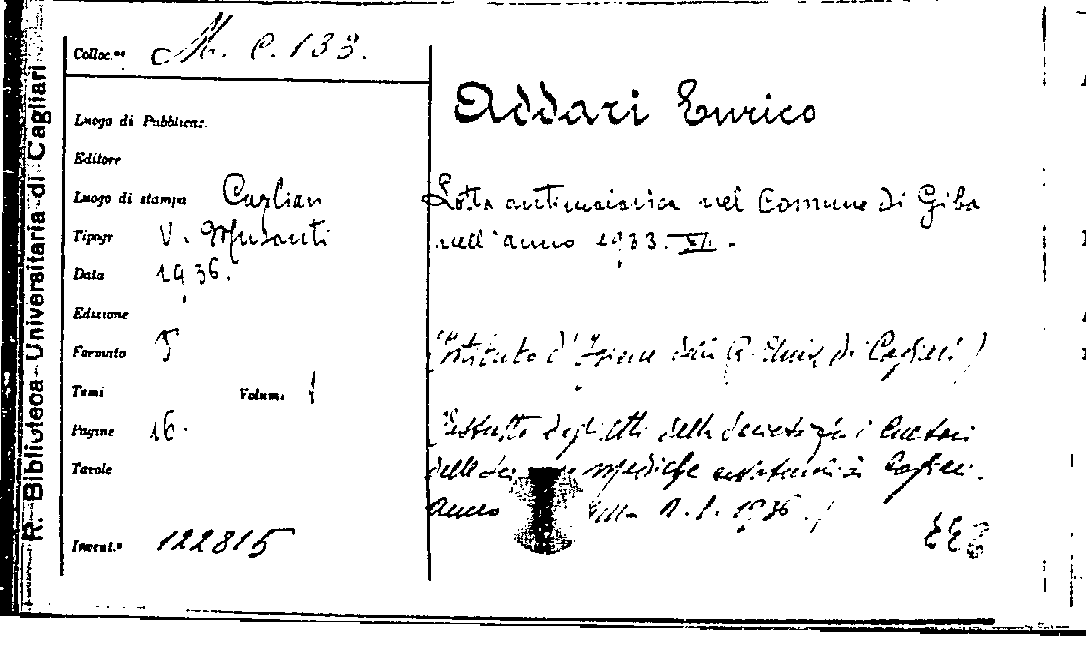 R. Biblioteca Universitaria di Cagliari
Colloc.ne M. C. 133.
Luogo di Pubblicaz.
Editore
Luogo di stampa Cagliari
Tipogr V. Musanti
Data 1936.
Edizione
Formato
Tomi Volumi 1
Pagine 16.
Tavole
Invent.º 122815
Addari Enrico
Lotta antimalarica nel Comune di Giba
nell'anno 1933. XI. -
(Istituto d'Igiene della R. Univ. di Cagliari)
(Estratto dagli Atti della Società fra i Cultori
delle mediche in Cagliari.
Anno N. 1. 1936.)